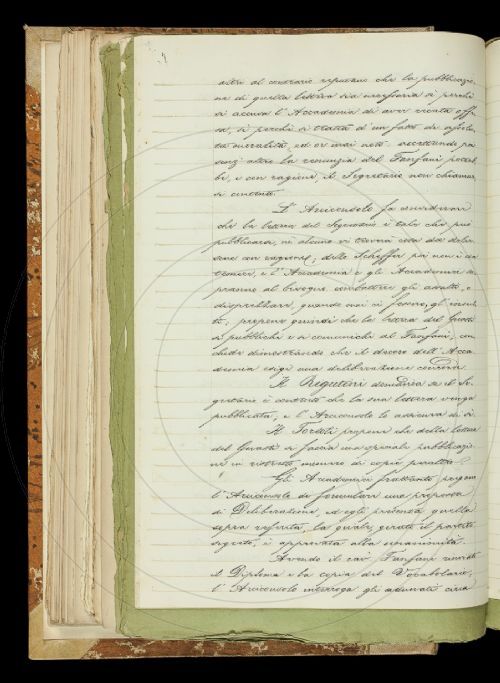 altri al contrario reputano che la pubblicazio-
ne di quella lettera sia necessaria sì perchè
si accusa l'Accademia di aver recata offe-
sa, sì perchè si tratta d'un fatto di
moralità, ed or mai noto. accettando poi
senz'altro la renunzia del Fanfani potreb-
be, e con ragione, il Segretario non chiamar-
si contento.
L'Arciconsolo fa considerare
che la lettera del Segretario è tale che può
pubblicarsi, nè alcuno vi troverà cosa da
con ragione; dello Scheffer poi non è da
temere, e l'Accademia e gli Accademici sa-
pranno al bisogno combattere gli assalti, e
disprezzare, quando mai vi fosse, gl'insul-
ti; propone quindi che la lettera del Guasti
si pubblichi e si comunichi al Fanfani, con-
chiude dimostrando che il decoro dell'Acca-
demia esige una deliberazione
Il Rigutini domanda se il Se-
gretario è contento che la sua lettera venga
pubblicata, e l'Arciconsolo lo assicura di sì.
Il Tortoli propone che della lettera
del Guasti si faccia una speciale pubblicazio-
ne in ristretto numero di copie
Gli Accademici frattanto pregano
l'Arciconsolo di formulare una proposta
di Deliberazione, ed egli presenta quella
sopra riferita, la quale, girato il partito
segreto, è approvata alla unanimità.
Avendo il cav. Fanfani inviato
il Diploma e la copia del Vocabolario,
l'Arciconsolo interroga gli adunati circa